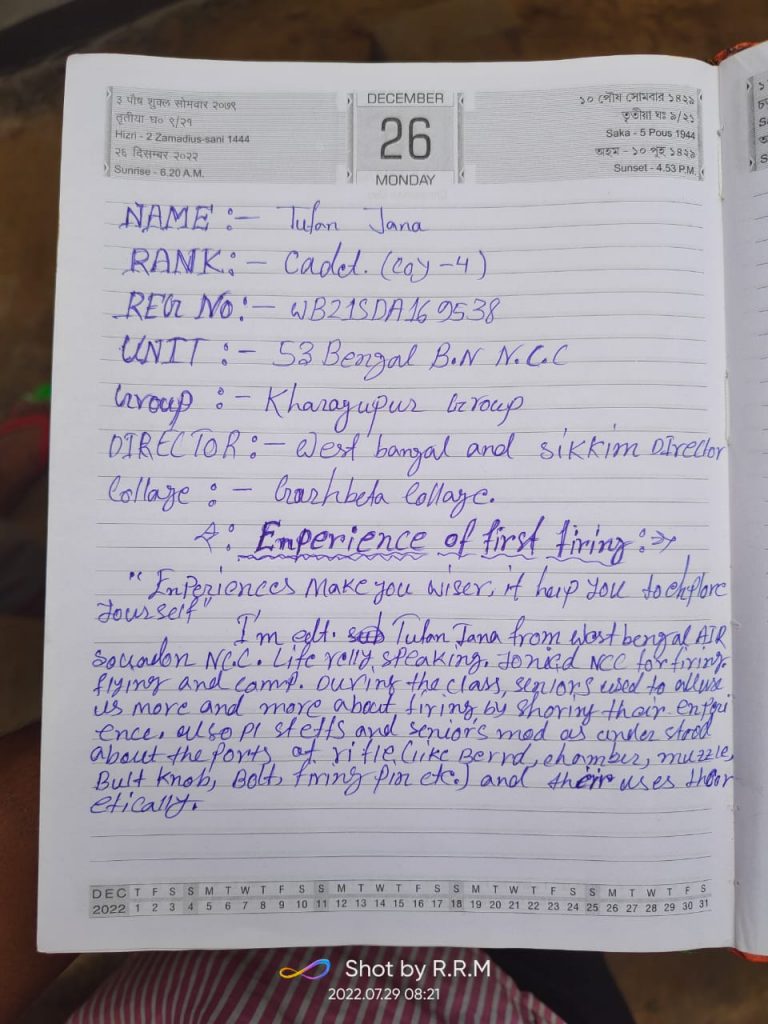 ३ पौष शुक्ल सोमवार २०७९
तृतीया घ० ९/२१
Hizri - 2 Zamadius-sani 1444
२६ दिसम्बर २०२२
Sunrise - 6.20 A.M.
DECEMBER
26
MONDAY
১০ পৌষ সোমবার ১৪২৯
তৃতীয়া ঘঃ ৯/২১
Saka - 5 Pous 1944
অহম - ১০ পুহ ১৪২৯
Sunset - 4.53 P.M.
NAME :- Tufan Jana
RANK :- Cadet. (Coy -4)
REG No :- WB21SDA169538
UNIT :- 53 Bengal B.N N.C.C
Group :- Kharagupur Group
DIRECTOR :- West bangal and sikkim Director
Collage :- Garhbeta Collage.
Enperience of first firing :→
"Enperiences make you wiser, it help you to enplore
yourself"
I'm cdt. Tufan Jana from West bengal AIR
squadon NCC. Life relly speaking. Jonied NCC for firing,
flying and camp. During the class, seniors used to
us more and more about firing by shoring their enperi
ence. also PI steffs and seniors mod as under stood
about the ports of rifle (like Berrd, chamber, muzzle,
Bult Knob, Bolt, firing pin etc.) and their uses theor
etically.
DEC T F S S M T W T F S S M T W T F S S M T W T F S S M T W T F S
2022 1 2 3 4 5 6 7 8 9 10 11 12 13 14 15 16 17 18 19 20 21 22 23 24 25 26 27 28 29 30 31
Shot by R.R.M
2022.07.29 08:21